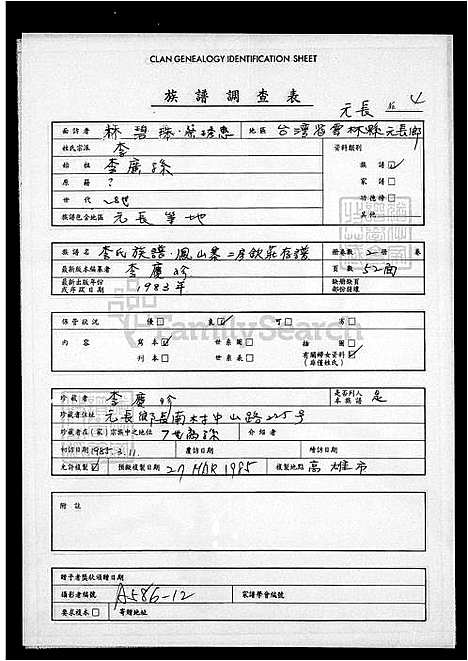 CLAN GENEALOGY IDENTIFICATION SHEET
族譜調查表
元長 4
面訪者 林碧珠 地區 台灣省雲林縣元長鄉
姓氏宗派 李 資料類別
始祖 李廣孫 族譜☑
原籍 ? 家譜□
世代 功德榜□
族譜包含地區 元長等地 其他
族譜名 李氏族譜·鳳山寨二房飲莊存譜 冊卷數 2 冊 卷
最新版本編纂者 李慶珍 頁數 52面
最新出版年份或存放日期 1983年 缺缺頁部份號碼
保管狀況 優□ 良☑ 可□ 劣□
內容 寫本☑ 世系圖□ 插圖□
刊本□ 世系表□ 有關婦女資料☑(非僅姓氏)
珍藏者 李慶珍 是否列入本族譜 是
珍藏者住址 元長鄉長南村中山路225號
珍藏者在(家)宗族中之地位 介紹者
初訪日期 1985.3.11 覆訪日期 續訪日期
允許複製☑ 預擬複製日期 27 MAR 1985 複製地點 高雄市
附註
贈予者獎狀頒贈日期
攝影者編號 A586-12 家譜學會編號
要求複本□ 寄贈地址
FamilySearch